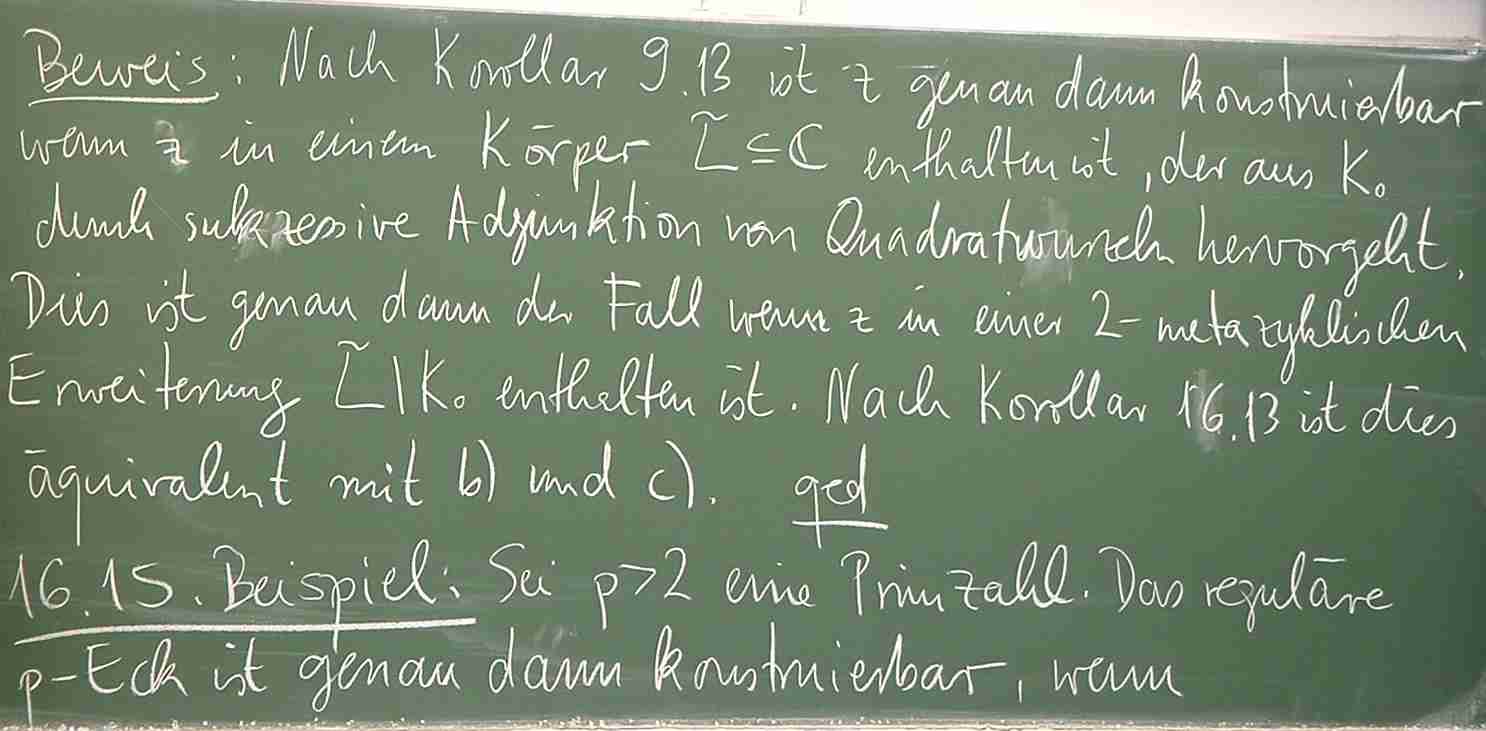 Beweis: Nach Korollar 9.13 ist z genau dann konstruierbar
wenn z in einem Körper L̃ ⊆ ℂ enthalten ist, der aus K₀
durch sukzessive Adjunktion von Quadratwurzeln hervorgeht.
Dies ist genau dann der Fall wenn z in einer 2-metazyklischen
Erweiterung L̃|K₀ enthalten ist. Nach Korollar 16.13 ist dies
äquivalent mit b) und c). qed
16.15. Beispiel: Sei p>2 eine Primzahl. Das reguläre
p-Eck ist genau dann konstruierbar, wenn